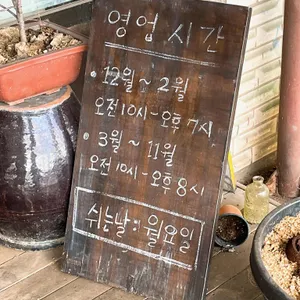 영업 시간
• 12월 ~ 2월
오전 10시 - 오후 7시
• 3월 ~ 11월
오전 10시 - 오후 8시
쉬는날 : 월요일